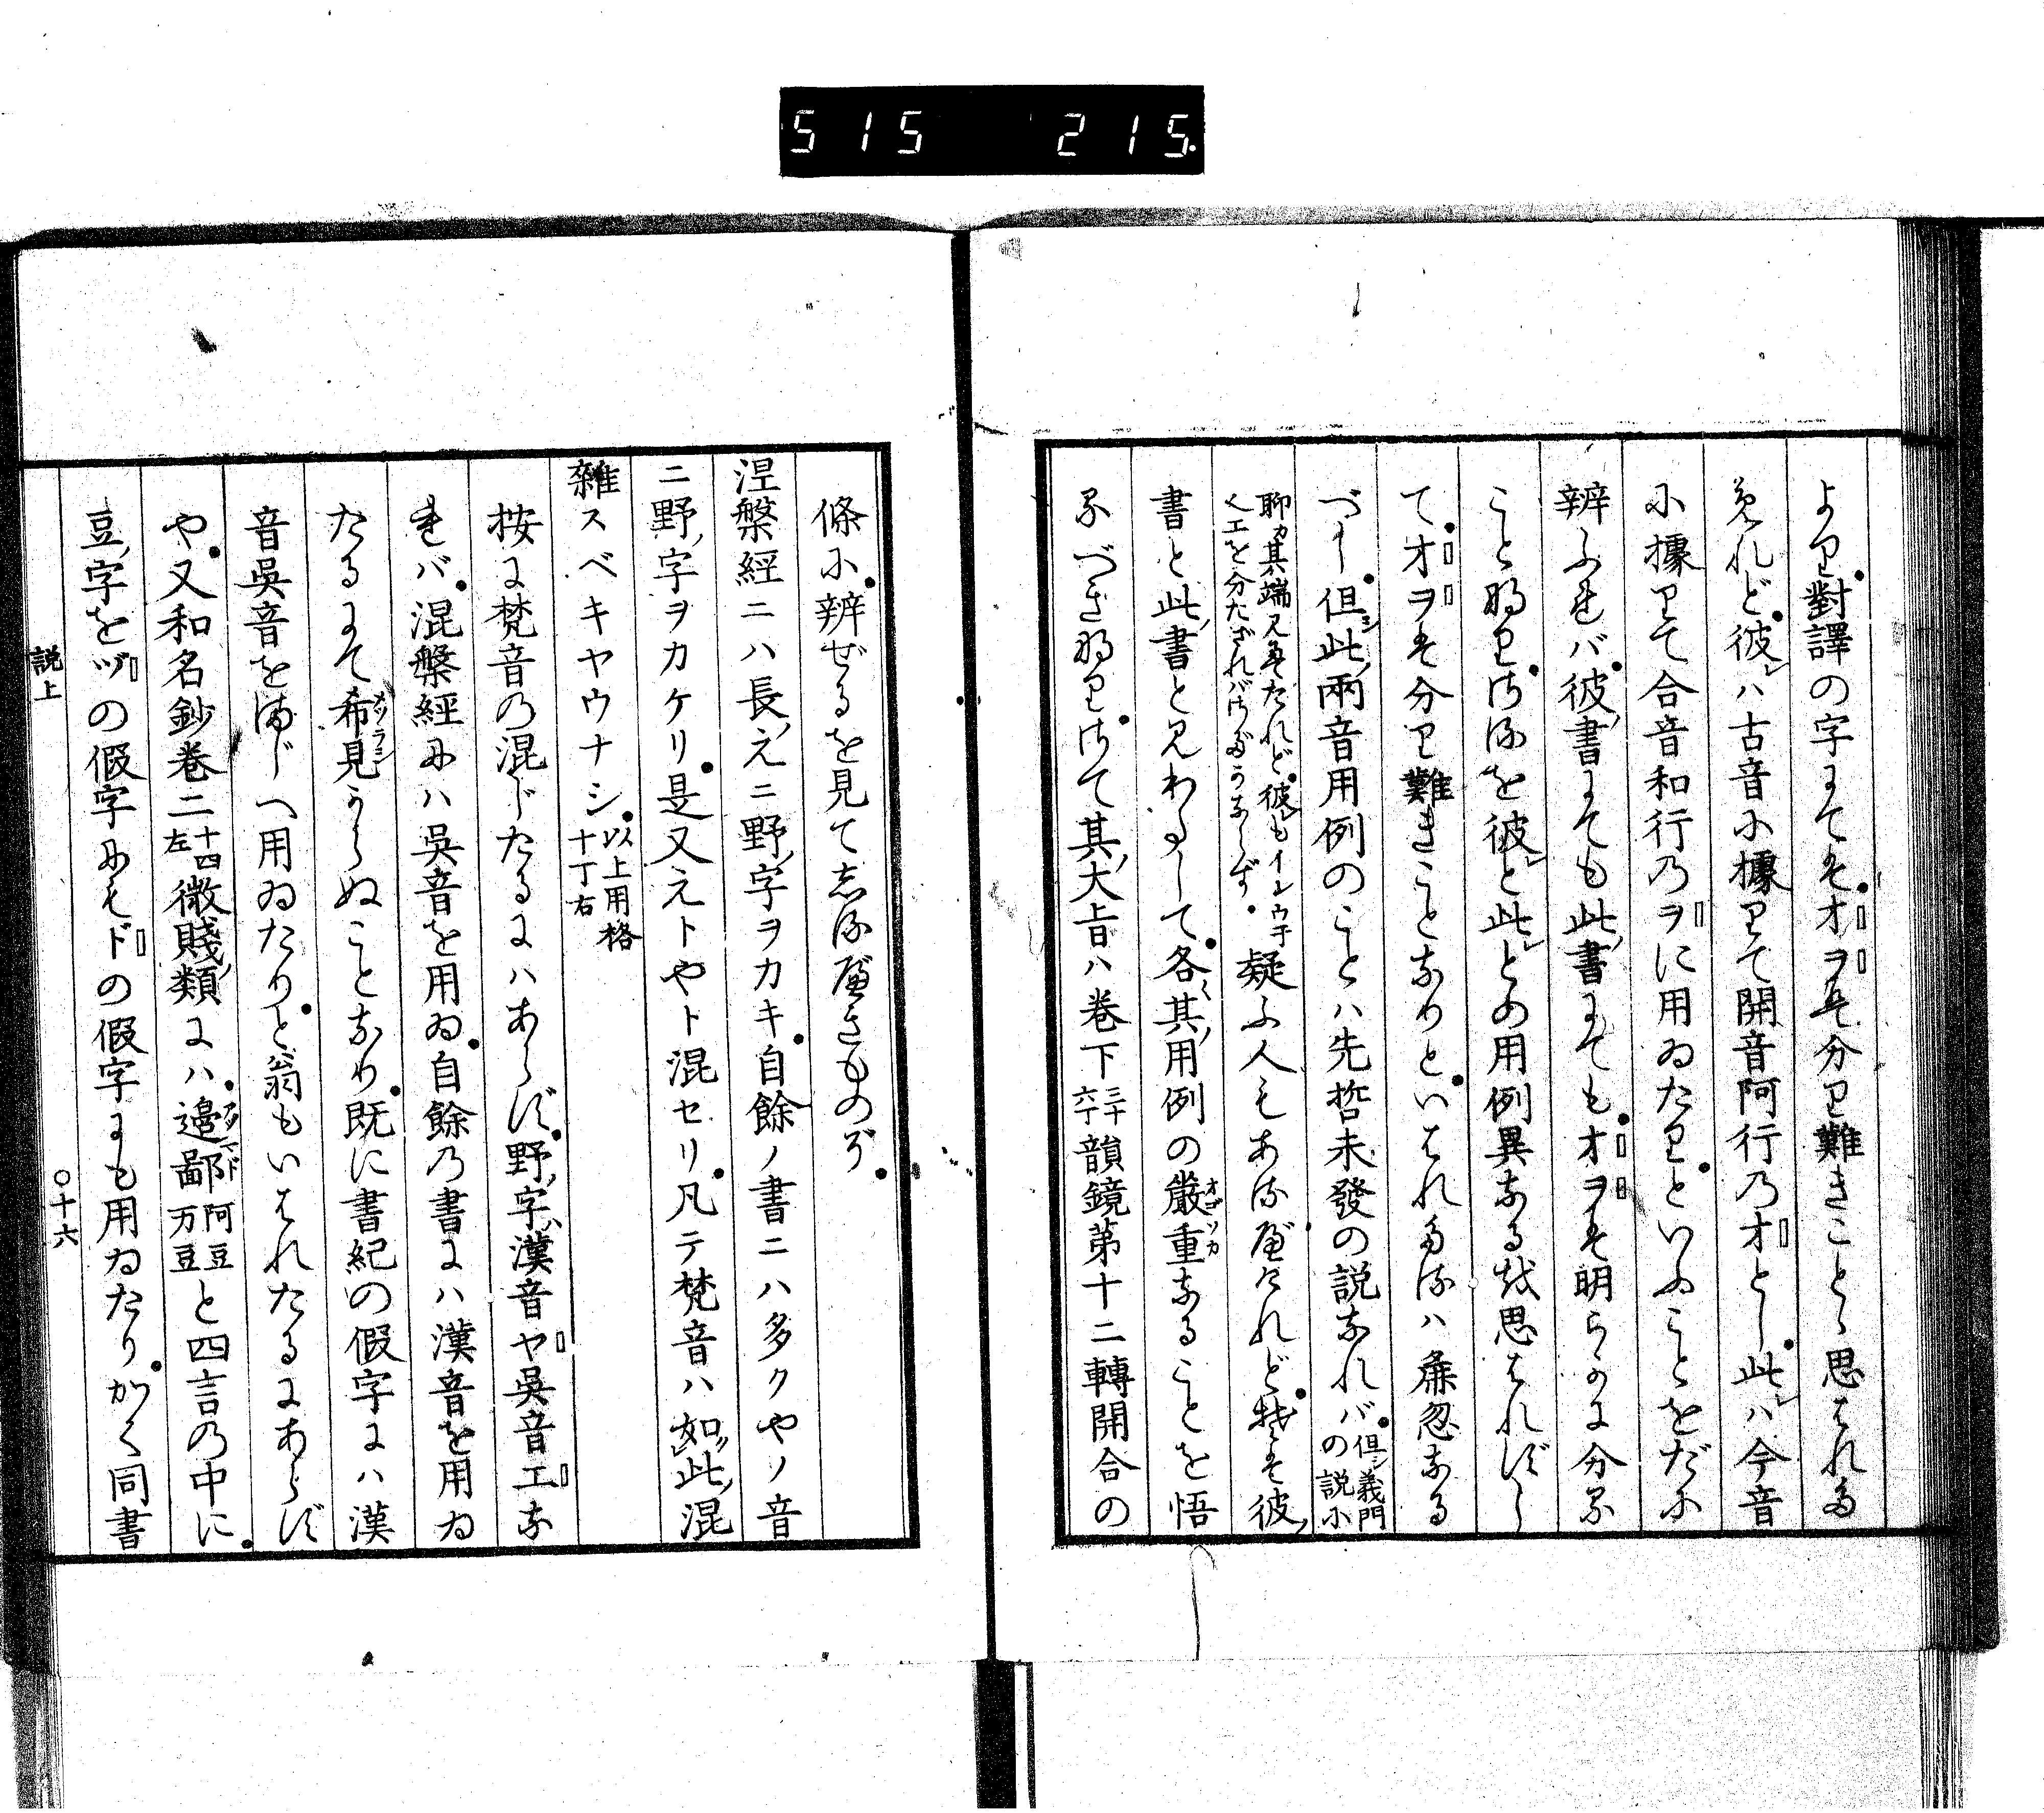 515 215.
より對譯の字にてはオヲは分り難きことゝ思はれた
めれど彼ハ古音に據りて開音阿行のオとし此ハ今音
に據りて合音和行のヲに用ゐたりといふことをだに
辨ふれバ彼書にても此書にてもオヲは明らかに分る
ことなりさるを彼と此との用例異なるは思はれずし
てオヲは分り難きことなりといはれたるハ麁忽なる
べし但シ此兩音用例のことハ先哲未發の説なれバ但シ義門の説に
聊カ其端見えたれど彼もイヰウ于エヱを分たざれバさだかならず疑ふ人もあるべけれど其は彼
書と此書と見わたして各〻其用例の嚴重オゴソカなることを悟
るべきなりさて其大旨ハ巻下三十六丁韻鏡第十二轉開合の
條に辨ぜるを見てしるべきものぞ
涅槃經ニハ長えニ野字ヲカキ自餘ノ書ニハ多クやノ音
ニ野字ヲカケリ是又えトやト混セリ凡テ梵音ハ如此混
雜スベキヤウナシ以上用格十丁右
按に梵音の混じたるにハあらず野字ハ漢音ヤ吳音エな
れバ混槃經にハ吳音を用ゐ自餘の書にハ漢音を用ゐ
たるにて希見メツラシからぬことなり既に書紀の假字にハ漢
音吳音をまじへ用ゐたりと翁もいはれたるにあらず
や又和名鈔巻二十四左微賤類にハ邊鄙アツマド阿豆万豆と四言の中に
豆字をヅの假字にもドの假字にも用ゐたりかく同書
説上
〇十六